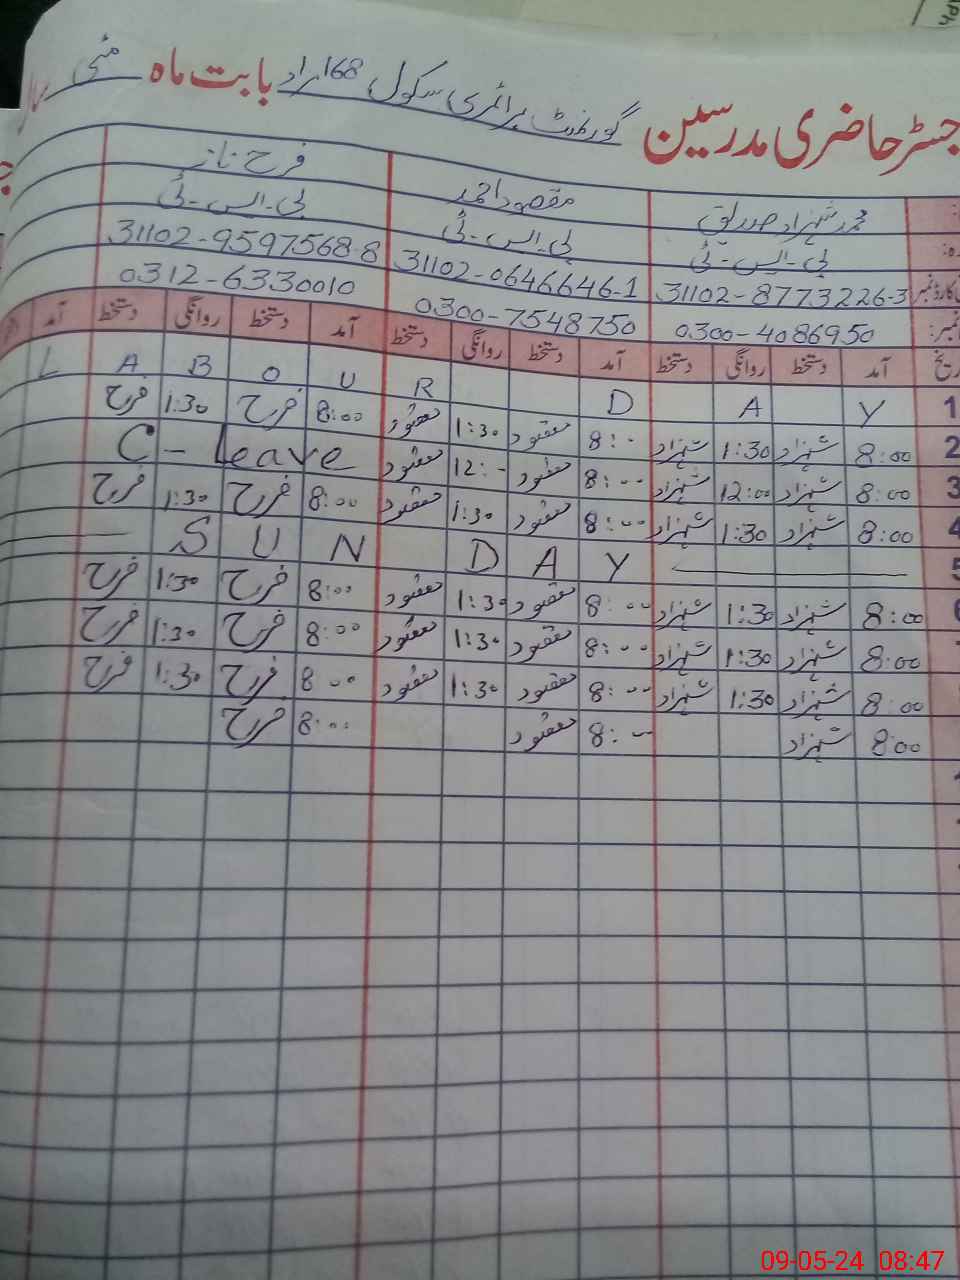 رجسٹر حاضری مدرسین گورنمنٹ پرائمری سکول 168 مراد بابت ماہ مئی
محمد شہزاد صدیق مقصود احمد فرح ناز
پی-ایس-ٹی پی-ایس-ٹی پی-ایس-ٹی
31102-8773226-3 31102-0646646-1 31102-9597568-8
0300-4086950 0300-7548750 0312-6330010
آمد دستخط روانگی دستخط آمد دستخط روانگی دستخط آمد دستخط روانگی دستخط آمد
1 L A B O U R D A Y
2 8:00 شہزاد 1:30 شہزاد 8:00 مقصود 1:30 مقصود 8:00 فرح 1:30 فرح
3 8:00 شہزاد 12:00 شہزاد 8:00 مقصود 12:00 مقصود C - leave
4 8:00 شہزاد 1:30 شہزاد 8:00 مقصود 1:30 مقصود 8:00 فرح 1:30 فرح
5 S U N D A Y
6 8:00 شہزاد 1:30 شہزاد 8:00 مقصود 1:30 مقصود 8:00 فرح 1:30 فرح
8:00 شہزاد 1:30 شہزاد 8:00 مقصود 1:30 مقصود 8:00 فرح 1:30 فرح
8:00 شہزاد 1:30 شہزاد 8:00 مقصود 1:30 مقصود 8:00 فرح 1:30 فرح
8:00 شہزاد 8:00 مقصود 8:00 فرح
09-05-24 08:47